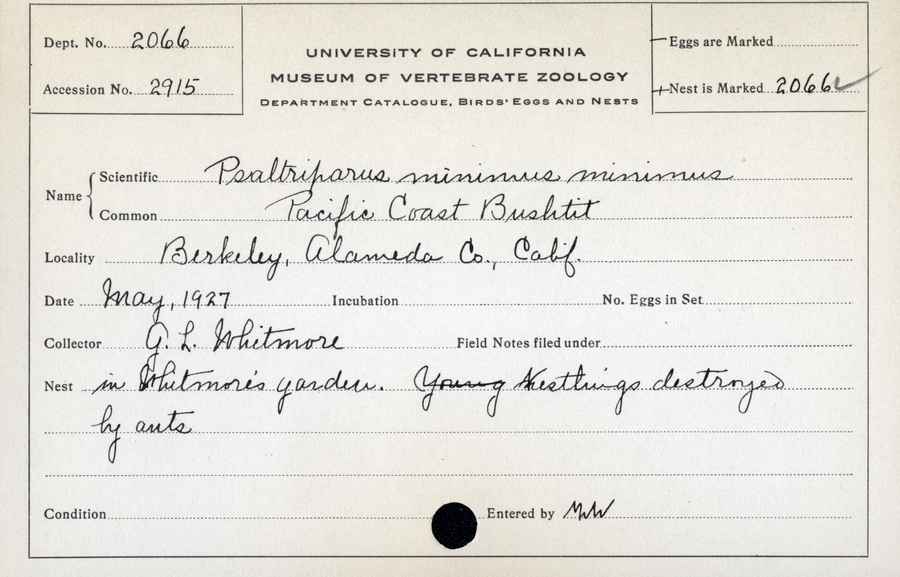 Dept. No. 2066
Accession No. 2915
UNIVERSITY OF CALIFORNIA
MUSEUM OF VERTEBRATE ZOOLOGY
DEPARTMENT CATALOGUE, BIRDS' EGGS AND NESTS
Eggs are Marked
Nest is Marked 2066 ✓
Name { Scientific Psaltriparus minimus minimus
Common Pacific Coast Bushtit
Locality Berkeley, Alameda Co., Calif.
Date May, 1927 Incubation No. Eggs in Set
Collector G. L. Whitmore Field Notes filed under
Nest in Whitmore's garden. Young Nestlings destroyed
by ants
Condition Entered by